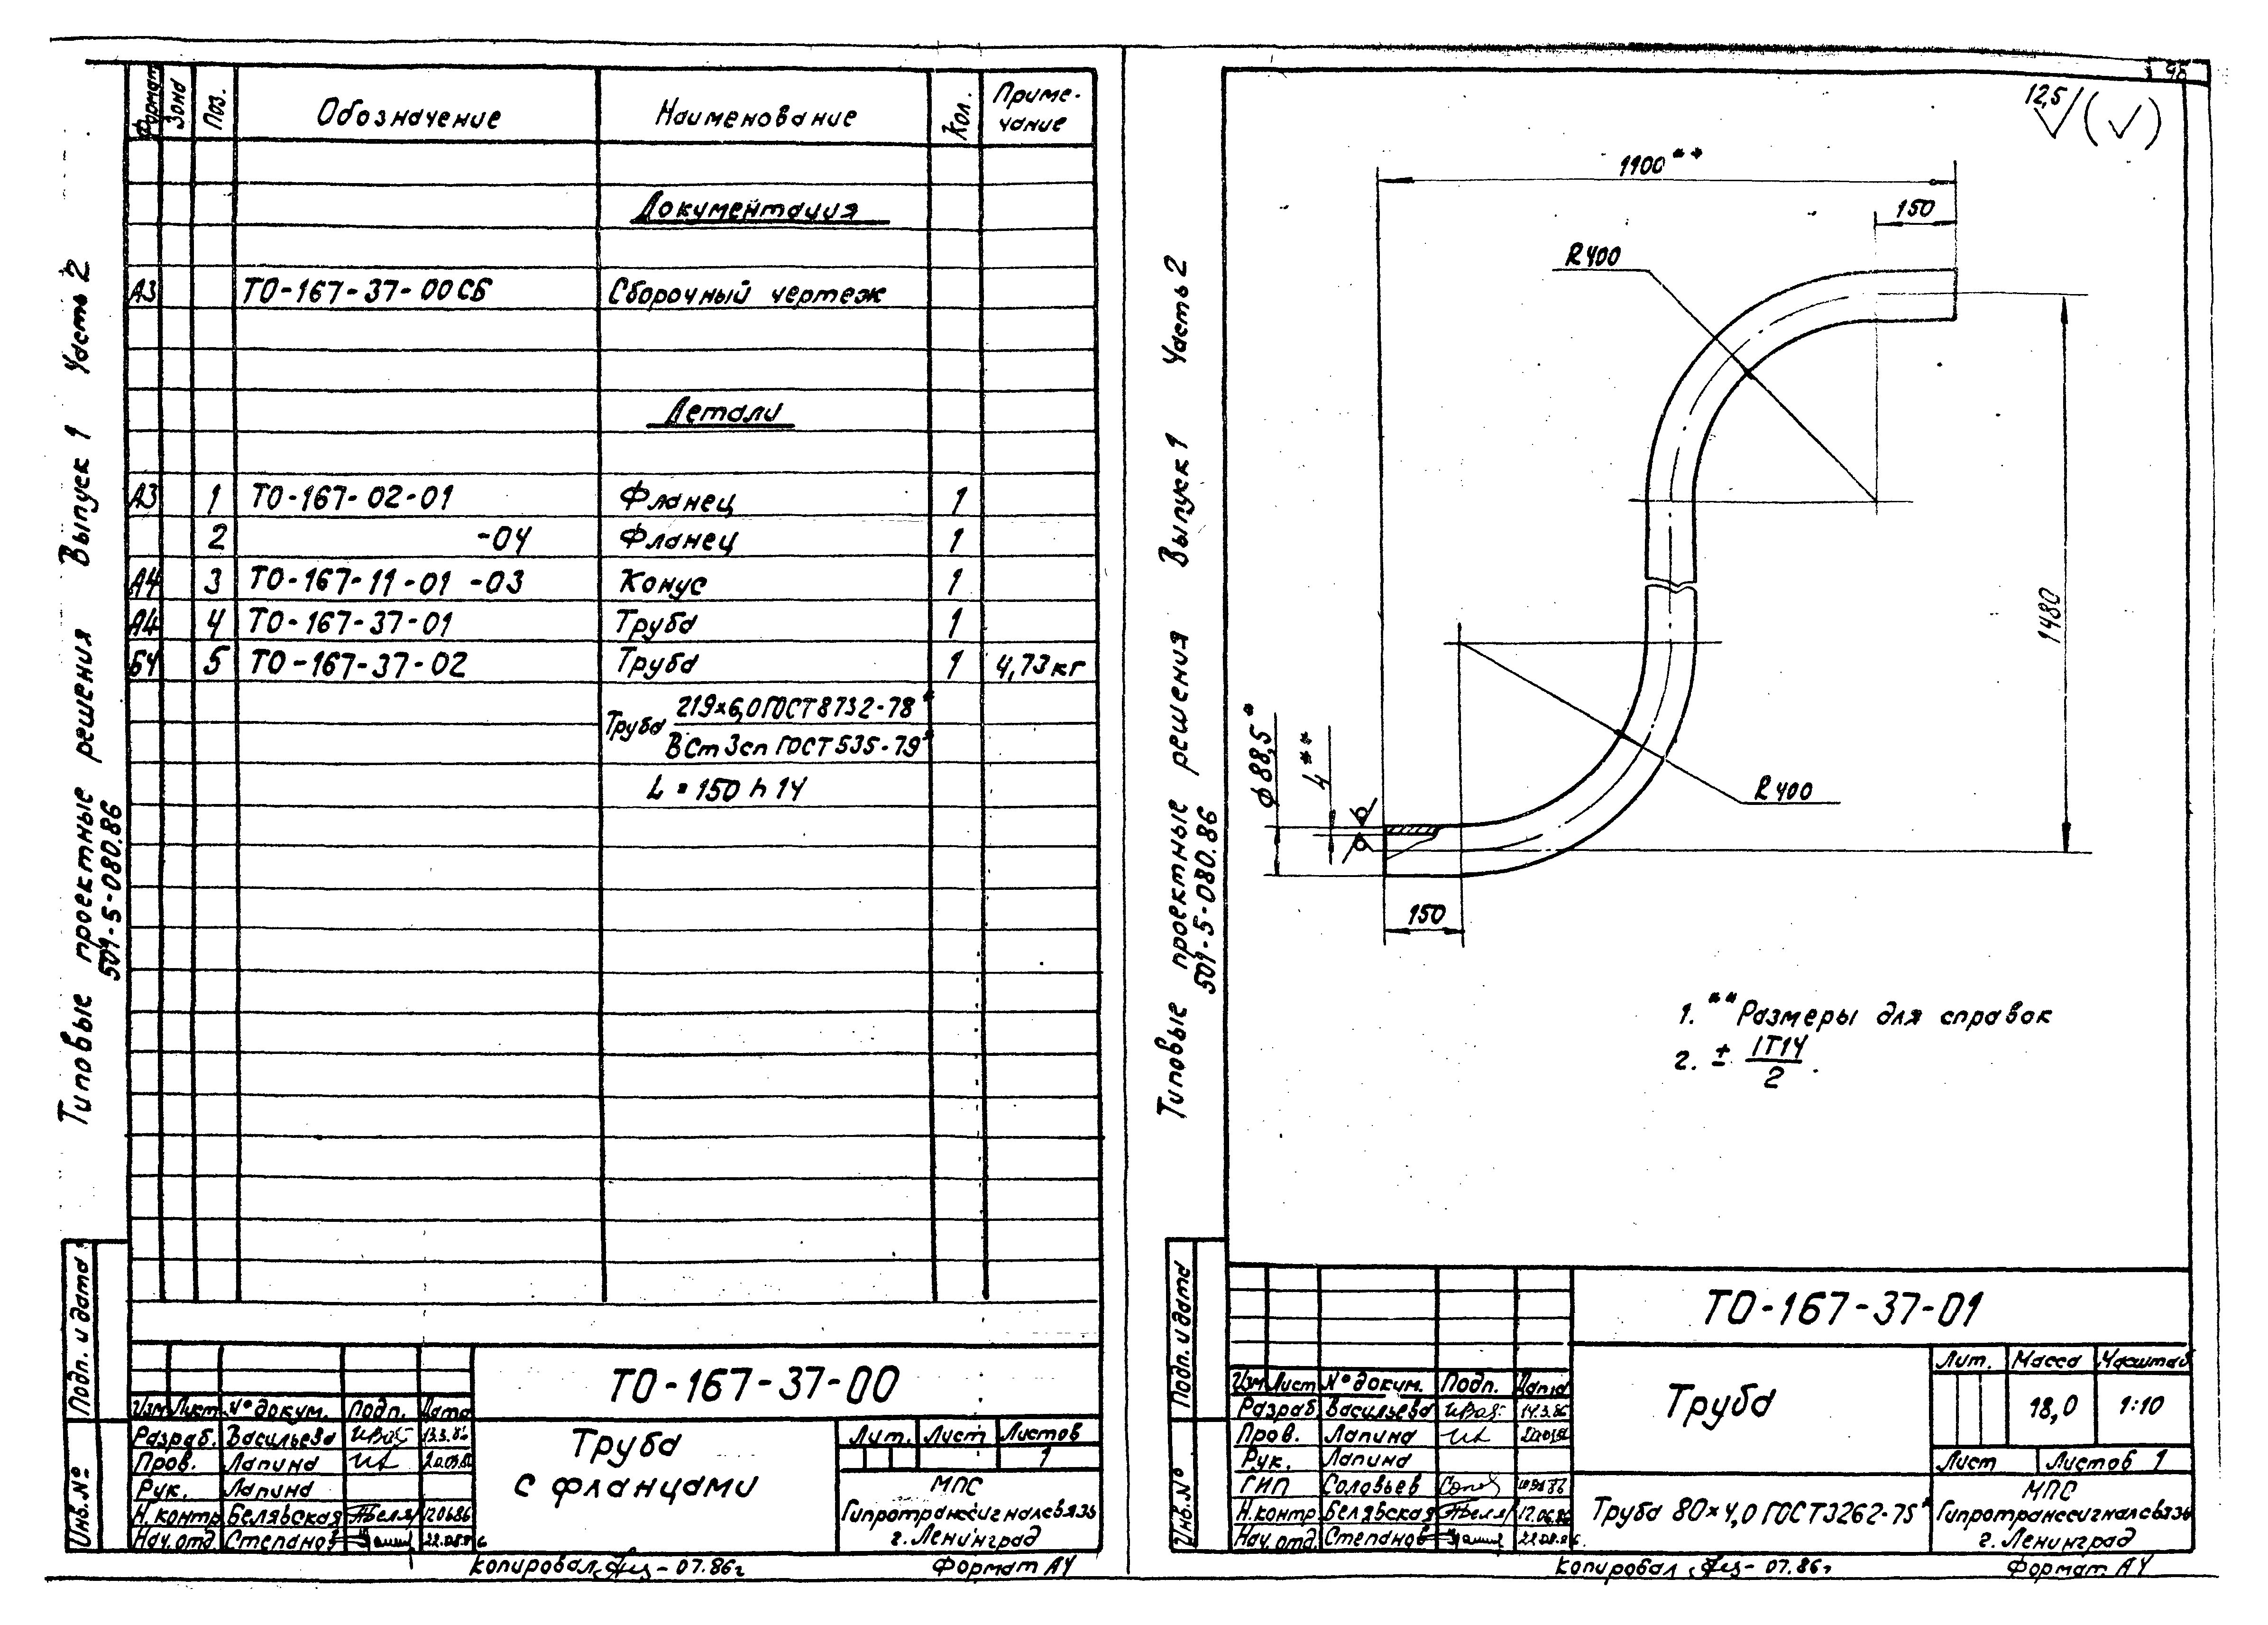 Типовые проектные решения Выпуск 1 Часть 2
501-5-080.86
Подп. и дата
Инв.№
Формат Зона Поз. Обозначение Наименование Кол. Приме-
чание
Документация
А3 ТО-167-37-00СБ Сборочный чертеж
Детали
А3 1 ТО-167-02-01 Фланец 1
2 -04 Фланец 1
А4 3 ТО-167-11-01 -03 Конус 1
А4 4 ТО-167-37-01 Труба 1
БЧ 5 ТО-167-37-02 Труба 1 4,73кг
219х6,0 ГОСТ 8732-78*
Труба
ВСт3сп ГОСТ 535-79*
L = 150 h14
ТО-167-37-00
Изм Лист № докум. Подп. Дата
Разраб. Васильева 13.3.86
Пров. Лапина
Рук. Лапина
Н.контр Белявская 12.06.86
Нач.отд. Степанов 22.08.86
Труба
с фланцами
Лит. Лист Листов
1
МПС
Гипротранссигналсвязь
г. Ленинград
Копировал - 07.86г Формат А4
Типовые проектные решения Выпуск 1 Часть 2
501-5-080.86
Подп. и дата
Инв.№
12,5 ( )
1100**
150
R400
1480
⌀88,5*
4**
R400
150
1. ** Размеры для справок
2. ± IT14
2 .
ТО-167-37-01
Изм Лист № докум. Подп. Дата
Разраб Васильева 14.3.86
Пров. Лапина
Рук. Лапина
ГИП Соловьев
Н.контр Белявская 12.06.86
Нач.отд. Степанов 22.08.86
Труба
Лит. Масса Масштаб
18,0 1:10
Лист Листов 1
Труба 80×4,0 ГОСТ 3262-75*
МПС
Гипротранссигналсвязь
г. Ленинград
Копировал - 07.86г Формат А4